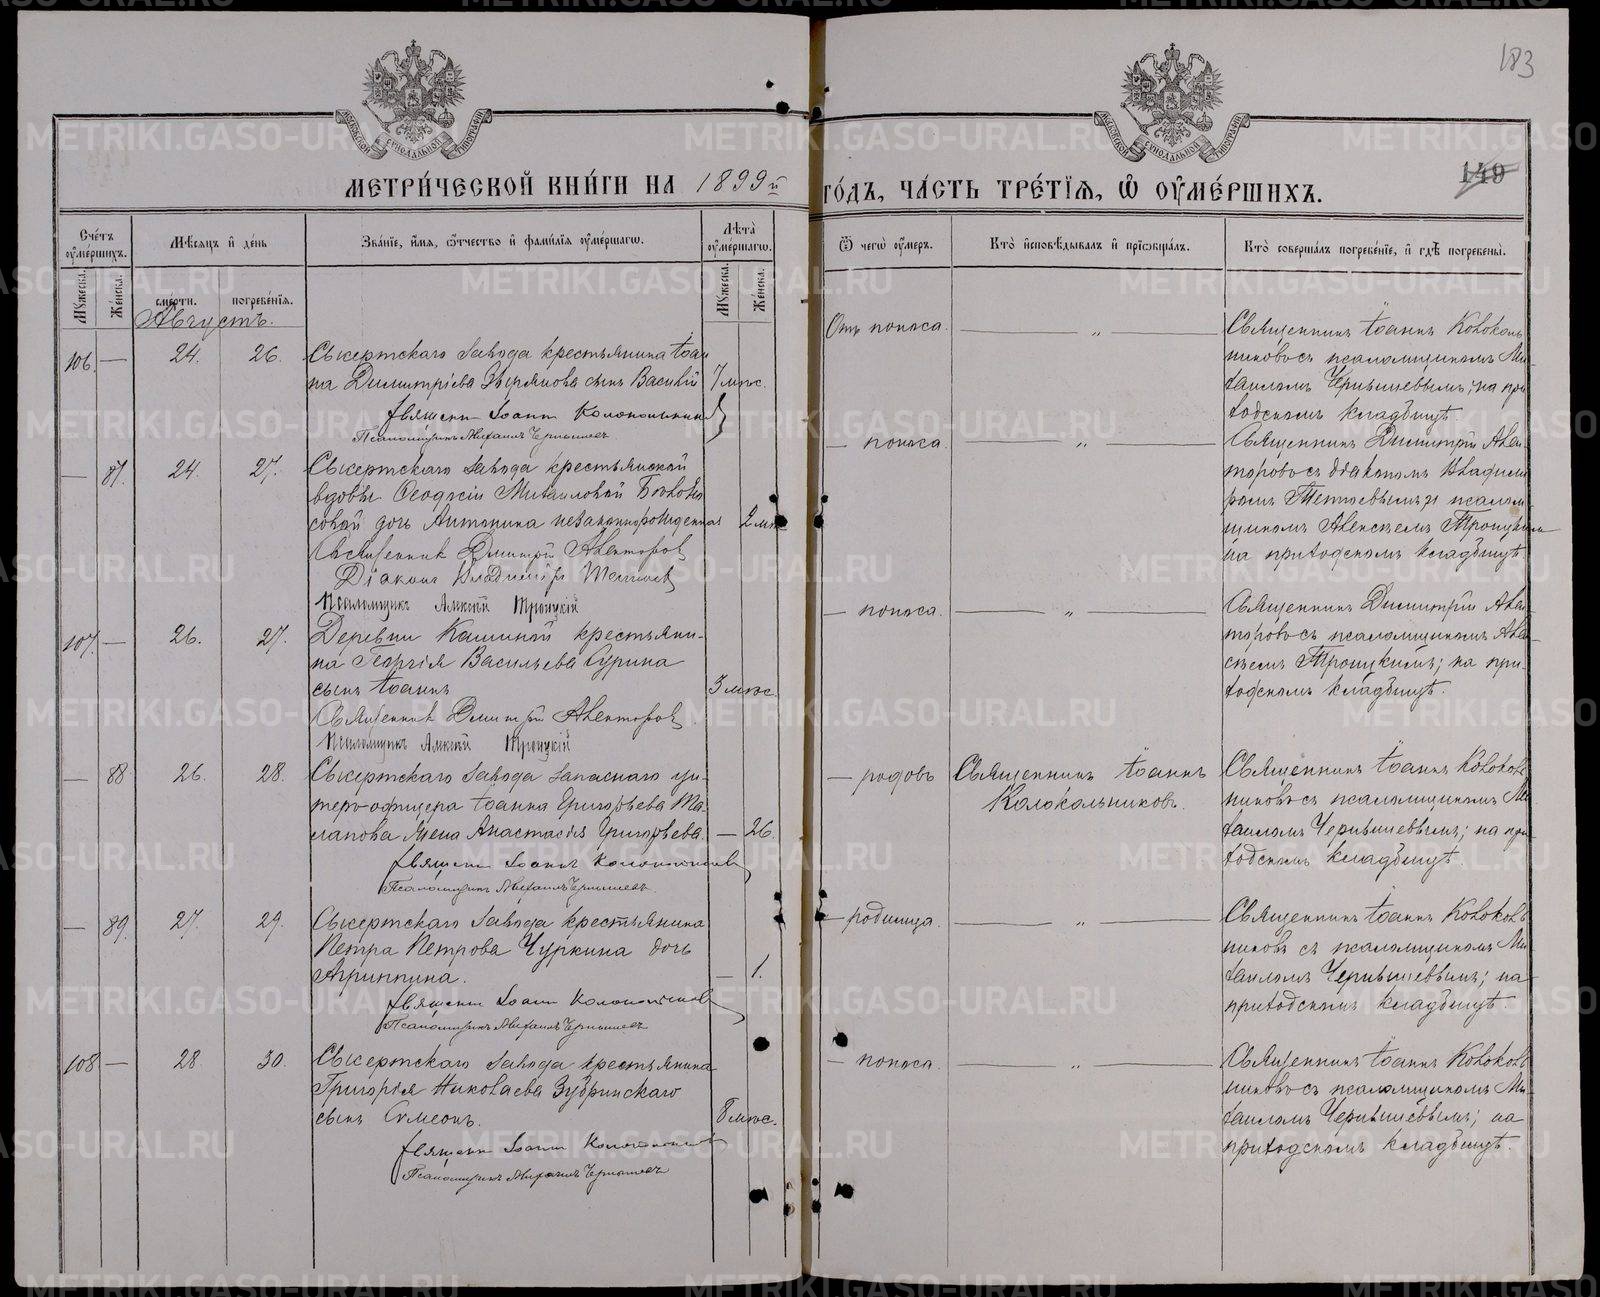 183
149
МЕТРИ́ЧЕСКОЙ КНИ́ГИ НА 1899й ГО́ДЪ, ЧА́СТЬ ТРЕ́ТІѦ, Ѡ ОУ҆МЕ́РШИХЪ.
Сче́тъ оу҆ме́ршихъ.
Мѣ́сяцъ и҆ де́нь
Зва́нїе, и҆́мѧ, ѻ҆́тчество и҆ фами́лїѧ оу҆ме́ршагѡ.
Лѣ́та оу҆ме́ршагѡ.
Ѿ чегѡ̀ оу҆́меръ.
Кто̀ и҆сповѣ́дывалъ и҆ прїѡбща́лъ.
Кто̀ соверша́лъ погребе́нїе, и҆ гдѣ̀ погребены̀.
Мꙋ́жеска.
Же́нска.
сме́рти.
погребе́нїѧ.
Мꙋ́жеска.
Же́нска.
Августъ.
106. — 24. 26. Сысертскаго завода крестьянина Іоан
на Димитріева Зырянова сынъ Василій 7 мѣс.
Священ Іоанн Колокольник
Псаломщикъ Михаилъ Чернышев
Отъ поноса. — „ —
Священникъ Іоаннъ Колоколь
никовъ съ псаломщикомъ Ми
хаиломъ Чернышевымъ; на при
ходскомъ кладбищѣ
— 87. 24. 27. Сысертскаго завода крестьянской
вдовы Ѳеодосіи Михаиловой
совой дочь Антонина незаконнорожденная 2 мѣс
Священник Димитрій Авенторов
Діакон Владимір
Псаломщик Алексій Троицкій
— поноса. — „ —
Священникъ Димитрій Авен
торовъ съ діакономъ Влади
міромъ и псалом
щикомъ Алексѣемъ Троицким
на приходскомъ кладбищѣ
107. — 26. 27. Деревни Кашиной крестьяни-
на Георгія Васильева Сурина
сынъ Іоаннъ 3 мѣс.
Священник Димитрій Авенторов
Псаломщик Алексій Троицкій
— поноса. — „ —
Священникъ Димитрій Авен
торовъ съ псаломщикомъ Але
ксѣемъ Троицкимъ; на при-
ходскомъ кладбищѣ.
— 88 26. 28. Сысертскаго завода запаснаго ун-
теръ-офицера Іоанна Григорьева Та-
ланова жена Анастасія Григорьева. — 26.
Священ Іоанн Колокольников
Псаломщикъ Михаилъ Чернышев.
— родовъ Священникъ Іоаннъ
Колокольниковъ.
Священникъ Іоаннъ Колоколь
никовъ съ псаломщикомъ Ми
хаиломъ Чернышевымъ; на при
ходскомъ кладбищѣ.
— 89. 27. 29. Сысертскаго завода крестьянина
Петра Петрова Чуркина дочь
Агриппина. — 1.
Священ Іоанн Колокольников
Псаломщикъ Михаилъ Чернышев
— родимца. — „ —
Священникъ Іоаннъ Колоколь
никовъ съ псаломщикомъ Ми
хаиломъ Чернышевымъ; на
приходскомъ кладбищѣ.
108 — 28. 30. Сысертскаго завода крестьянина
Григорія Николаева Зубринскаго
сынъ Симеонъ. 8 мѣс.
Священ Іоанн Колокольников
Псаломщикъ Михаилъ Чернышев
— поноса. — „ —
Священникъ Іоаннъ Колоколь
никовъ съ псаломщикомъ Ми
хаиломъ Чернышевымъ; на
приходскомъ кладбищѣ.
METRIKI.GASO-URAL.RU